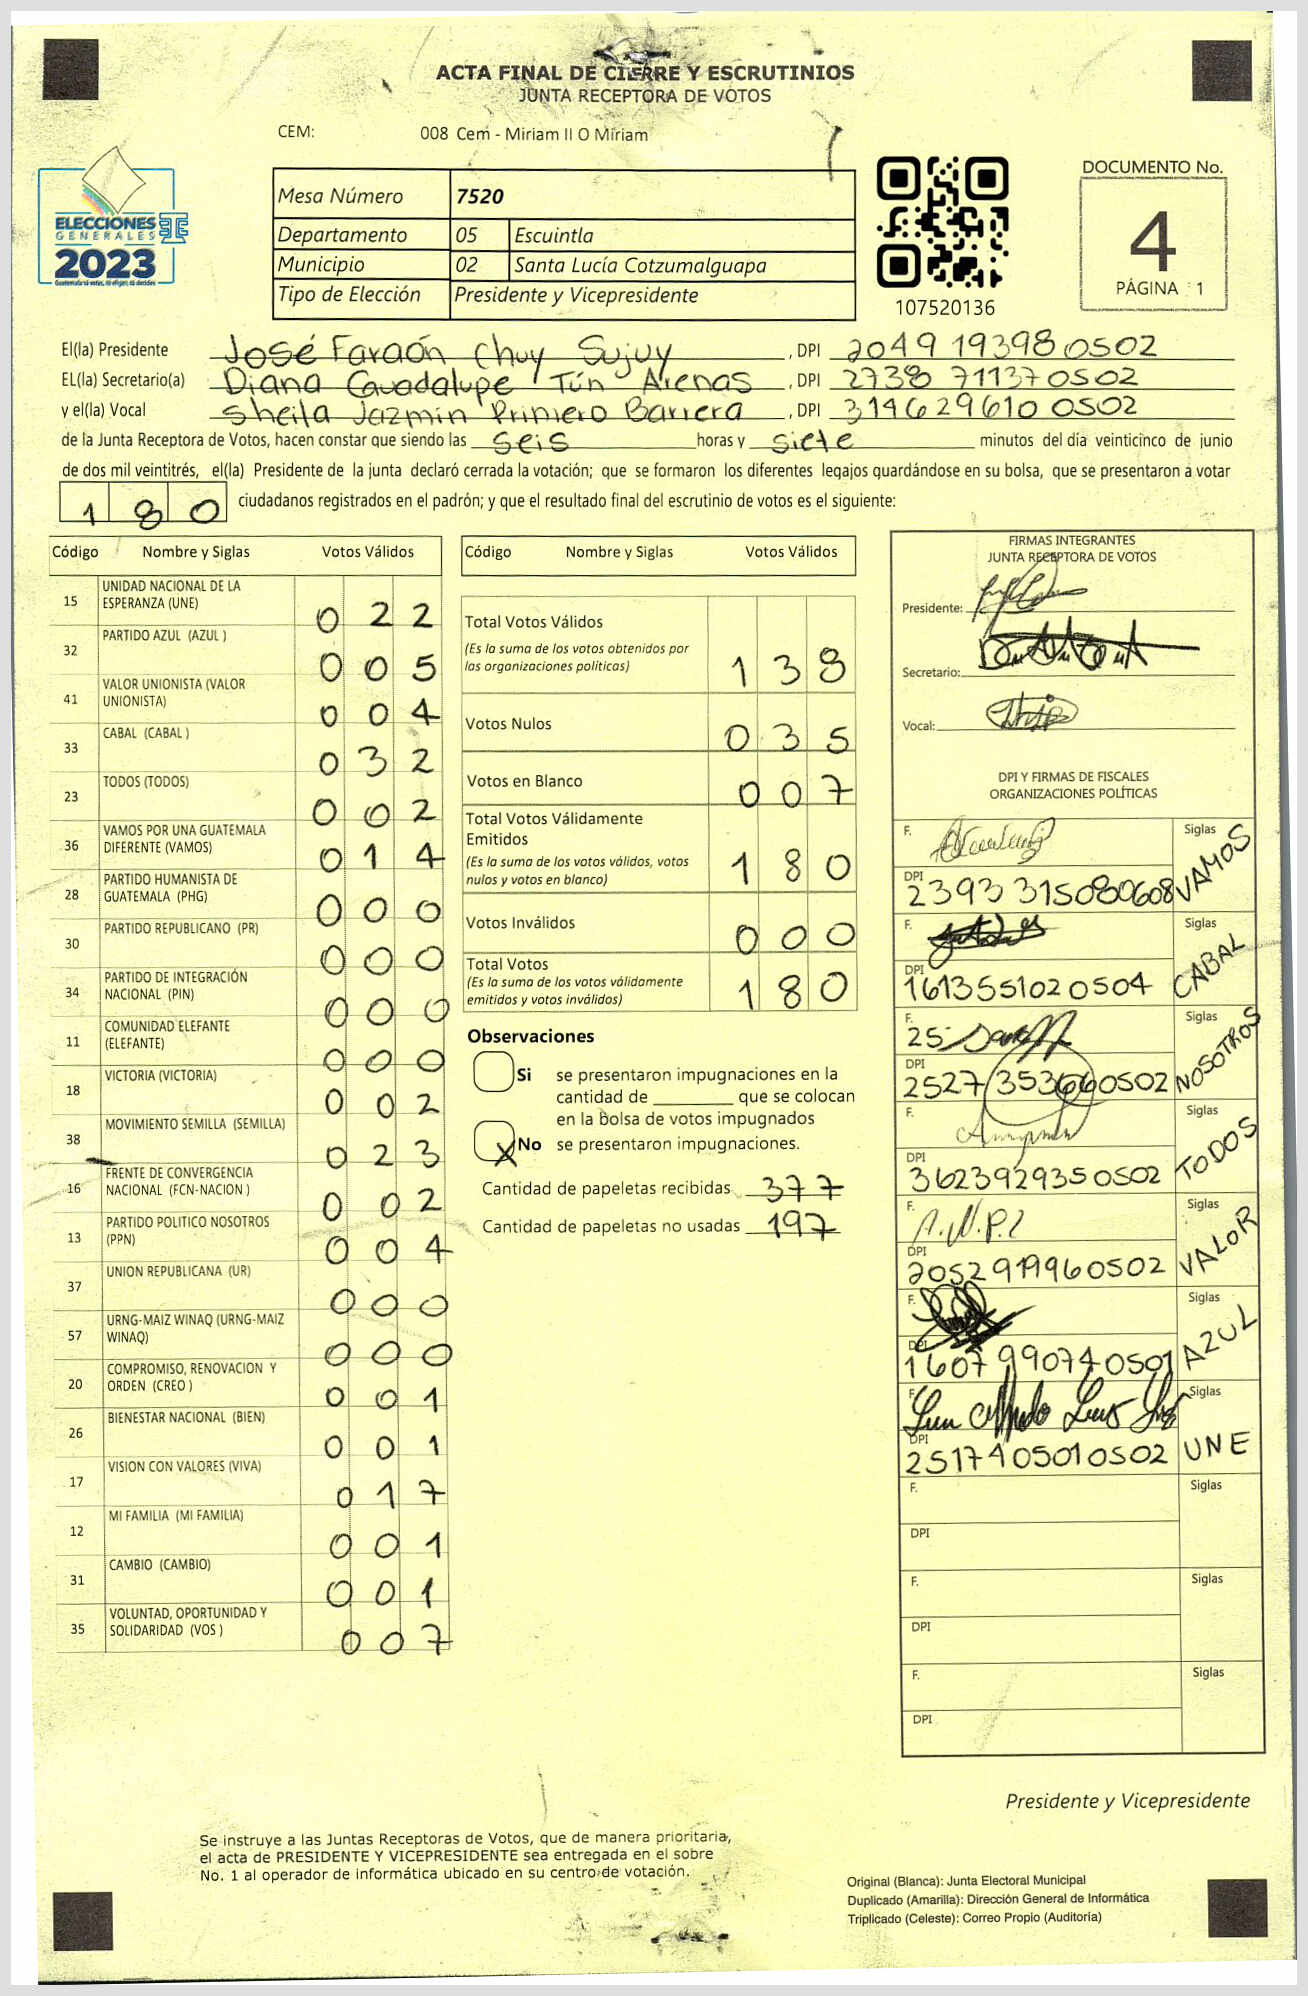 ACTA FINAL DE CIERRE Y ESCRUTINIOS
JUNTA RECEPTORA DE VOTOS
CEM: 008 Cem - Miriam II O Miriam
ELECCIONES
GENERALES
2023
Guatemala tú votas, tú eliges, tú decides
Mesa Número 7520
Departamento 05 Escuintla
Municipio 02 Santa Lucía Cotzumalguapa
Tipo de Elección Presidente y Vicepresidente
107520136
DOCUMENTO No.
4
PÁGINA : 1
El(la) Presidente José Faraón Chuy Sujuy , DPI 2049 19398 0502
EL(la) Secretario(a) Diana Guadalupe Tún Arenas , DPI 2738 71137 0502
y el(la) Vocal Sheila Jazmin Primero Barrera , DPI 3146 29610 0502
de la Junta Receptora de Votos, hacen constar que siendo las seis horas y siete minutos del día veinticinco de junio
de dos mil veintitrés, el(la) Presidente de la junta declaró cerrada la votación; que se formaron los diferentes legajos guardándose en su bolsa, que se presentaron a votar
180 ciudadanos registrados en el padrón; y que el resultado final del escrutinio de votos es el siguiente:
Código Nombre y Siglas Votos Válidos
15 UNIDAD NACIONAL DE LA
ESPERANZA (UNE) 022
32 PARTIDO AZUL (AZUL ) 005
41 VALOR UNIONISTA (VALOR
UNIONISTA) 004
33 CABAL (CABAL ) 032
23 TODOS (TODOS) 002
36 VAMOS POR UNA GUATEMALA
DIFERENTE (VAMOS) 014
28 PARTIDO HUMANISTA DE
GUATEMALA (PHG) 000
30 PARTIDO REPUBLICANO (PR) 000
34 PARTIDO DE INTEGRACIÓN
NACIONAL (PIN) 000
11 COMUNIDAD ELEFANTE
(ELEFANTE) 000
18 VICTORIA (VICTORIA) 002
38 MOVIMIENTO SEMILLA (SEMILLA) 023
16 FRENTE DE CONVERGENCIA
NACIONAL (FCN-NACION ) 002
13 PARTIDO POLITICO NOSOTROS
(PPN) 004
37 UNION REPUBLICANA (UR) 000
57 URNG-MAIZ WINAQ (URNG-MAIZ
WINAQ) 000
20 COMPROMISO, RENOVACION Y
ORDEN (CREO ) 001
26 BIENESTAR NACIONAL (BIEN) 001
17 VISION CON VALORES (VIVA) 017
12 MI FAMILIA (MI FAMILIA) 001
31 CAMBIO (CAMBIO) 001
35 VOLUNTAD, OPORTUNIDAD Y
SOLIDARIDAD (VOS ) 007
Código Nombre y Siglas Votos Válidos
Total Votos Válidos
(Es la suma de los votos obtenidos por
las organizaciones políticas) 138
Votos Nulos 035
Votos en Blanco 007
Total Votos Válidamente
Emitidos
(Es la suma de los votos válidos, votos
nulos y votos en blanco) 180
Votos Inválidos 000
Total Votos
(Es la suma de los votos válidamente
emitidos y votos inválidos) 180
Observaciones
Si se presentaron impugnaciones en la
cantidad de ________ que se colocan
en la bolsa de votos impugnados
X No se presentaron impugnaciones.
Cantidad de papeletas recibidas 377
Cantidad de papeletas no usadas 197
FIRMAS INTEGRANTES
JUNTA RECEPTORA DE VOTOS
Presidente:
Secretario:
Vocal:
DPI Y FIRMAS DE FISCALES
ORGANIZACIONES POLÍTICAS
F. Siglas VAMOS
DPI 2393 31508 0608
F. Siglas CABAL
DPI 1613551020504
F. Siglas NOSOTROS
DPI 2527 35366 0502
F. Siglas TODOS
DPI 3623929350502
F. A.N.P.L Siglas VALOR
DPI 2052 91996 0502
F. Siglas AZUL
DPI 1607 99074 0501
F. Siglas UNE
DPI 2517405010502
F. Siglas
DPI
F. Siglas
DPI
F. Siglas
DPI
Presidente y Vicepresidente
Se instruye a las Juntas Receptoras de Votos, que de manera prioritaria,
el acta de PRESIDENTE Y VICEPRESIDENTE sea entregada en el sobre
No. 1 al operador de informática ubicado en su centro de votación.
Original (Blanca): Junta Electoral Municipal
Duplicado (Amarilla): Dirección General de Informática
Triplicado (Celeste): Correo Propio (Auditoría)